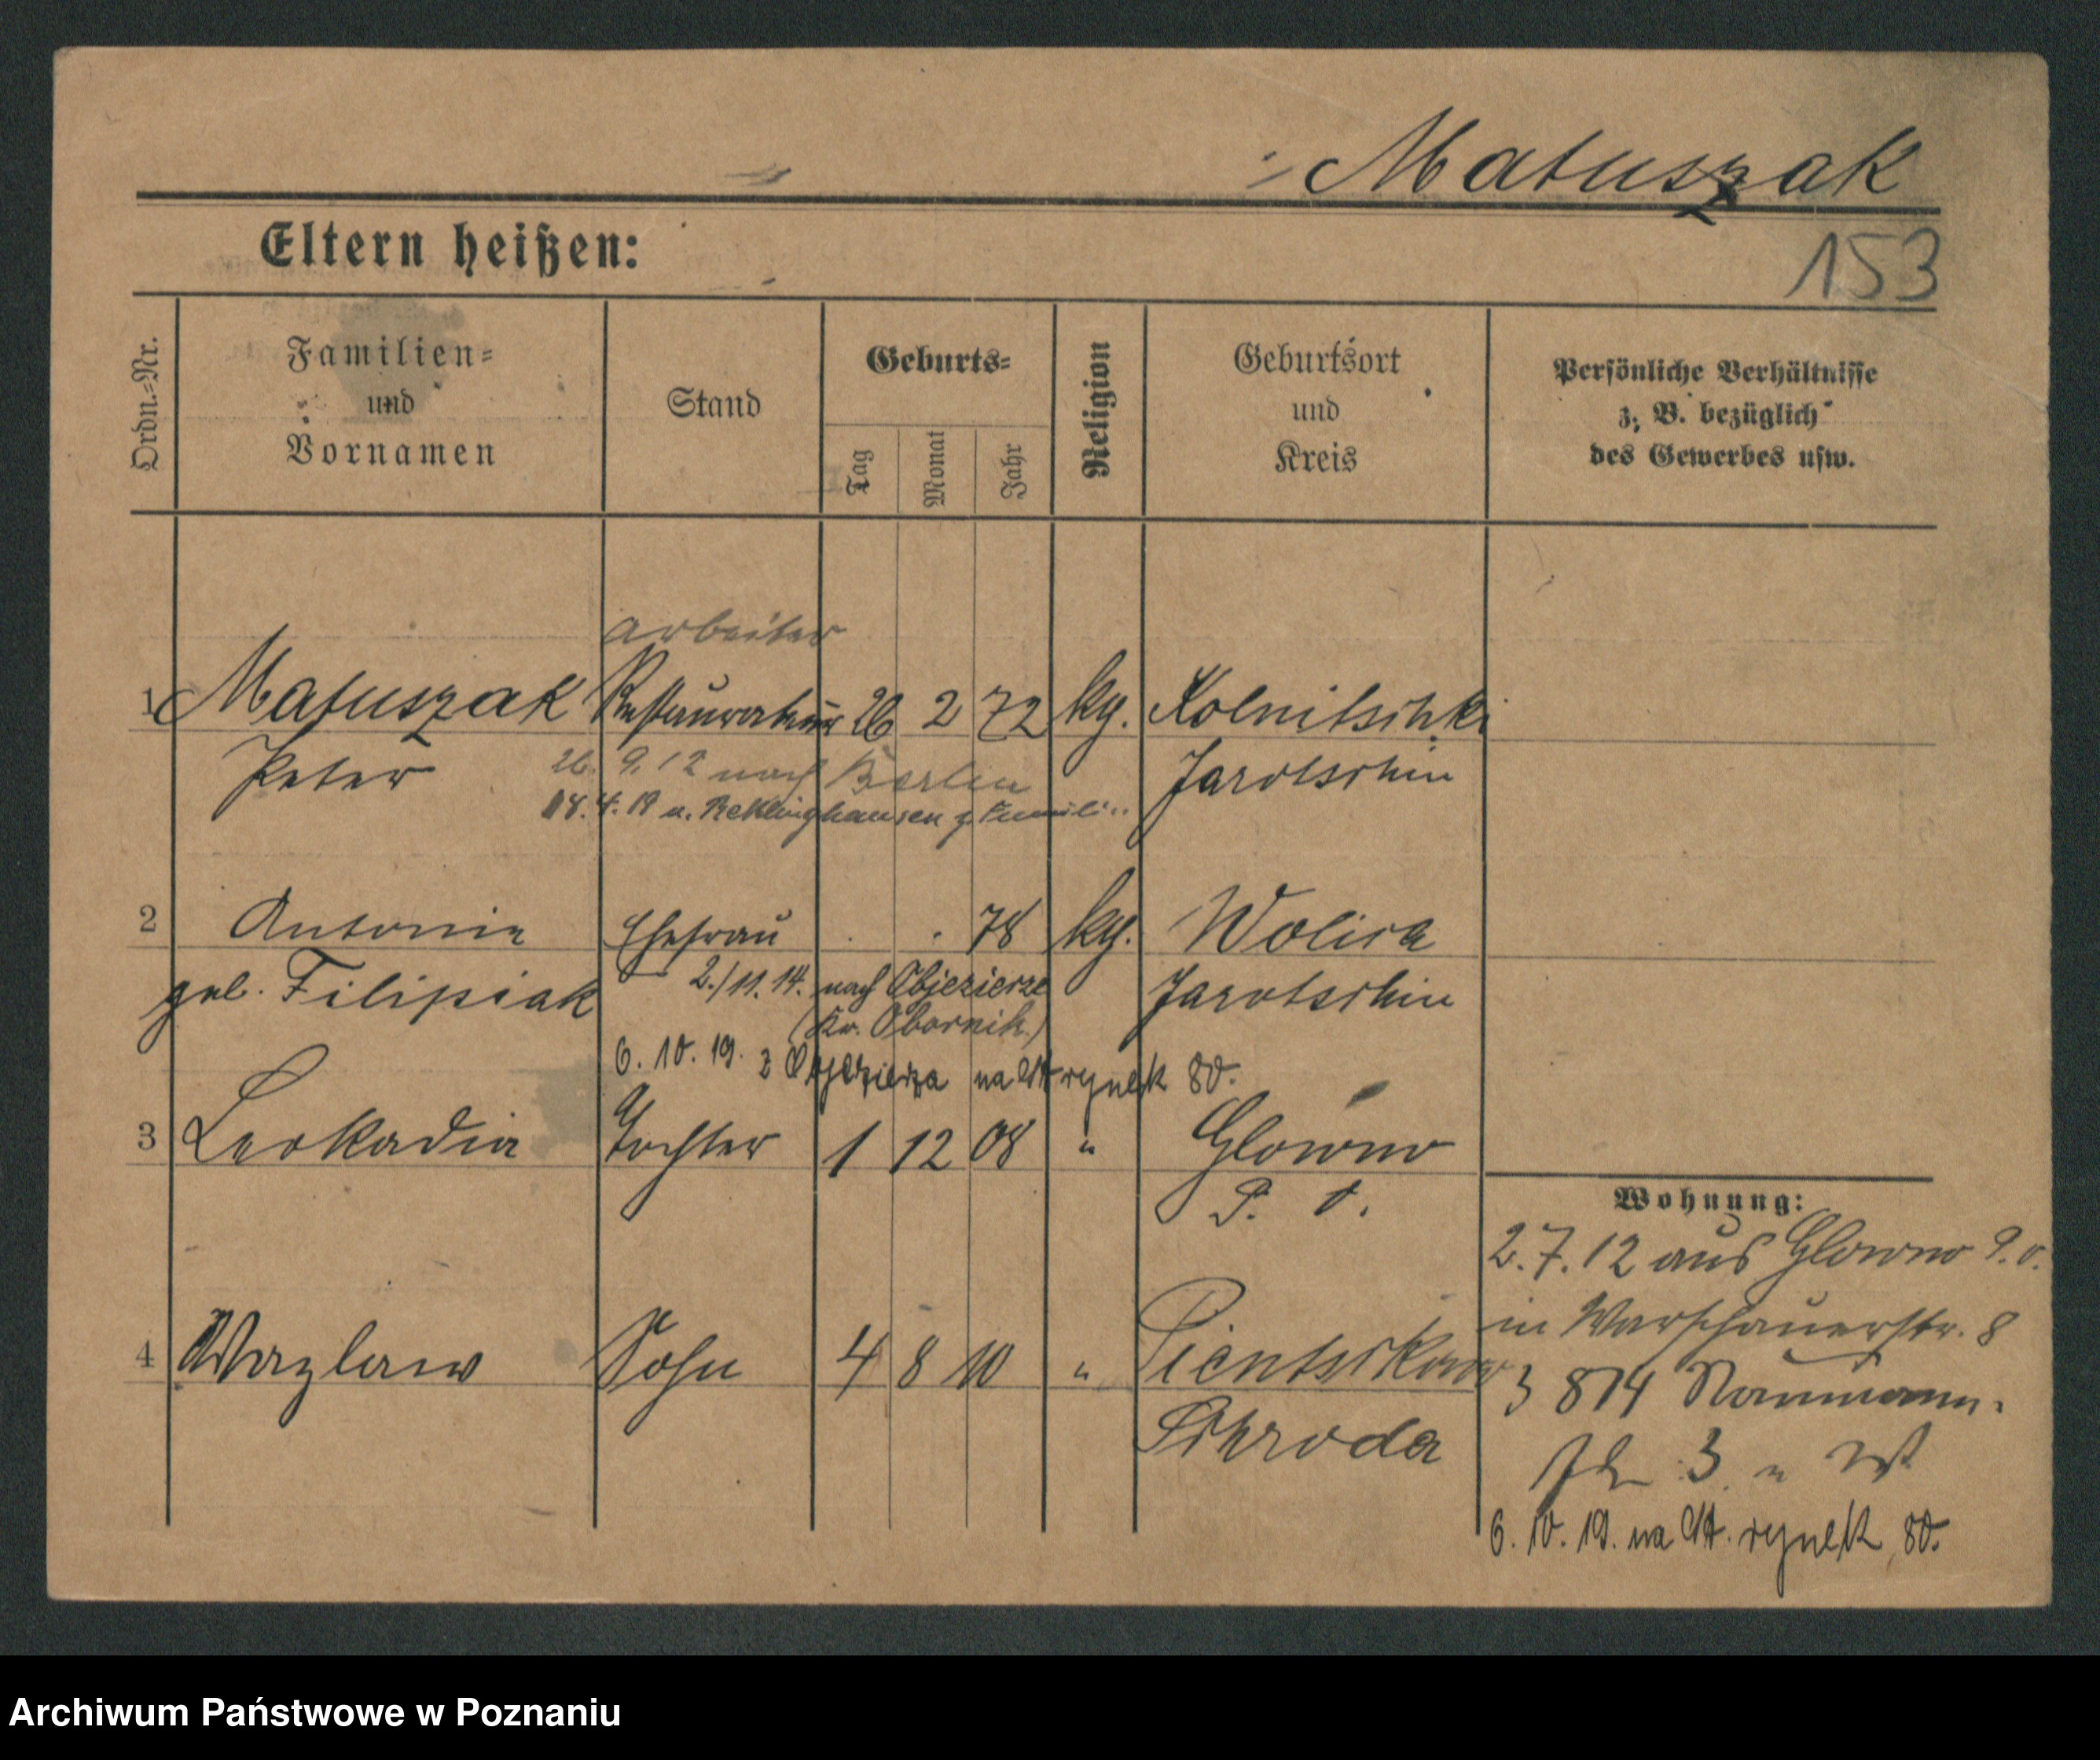 Matuszak
153
Eltern heißen:
Ordn.=Nr.
Familien=
und
Vornamen
Stand
Geburts=
Tag
Monat
Jahr
Religion
Geburtsort
und
Kreis
Persönliche Verhältnisse
z. B. bezüglich
des Gewerbes usw.
Arbeiter
1 Matuszak Restaurateur 26 2 72 kg. Kolnitschki
Peter Jarotschin
26. 9. 12 nach Berlin
18. 4. 19 u. Reklinghausen z.
2 Antonie Ehefrau . . 78 kg. Wolica
geb. Filipiak Jarotschin
2./11. 14. nach Objezierze
(Kr. Obornik)
6. 10. 19. z Objezierza na St rynek 80.
3 Leokadia Tochter 1 12 08 " Glowno
P. O.
4 Wazlaw Sohn 4 8 10 "
Schroda
Wohnung:
2. 7. 12 aus Glowno P. O.
in Warschauerstr. 8
3 814 Naumann.
3
6. 10. 19. na St. rynek 80.
Archiwum Państwowe w Poznaniu